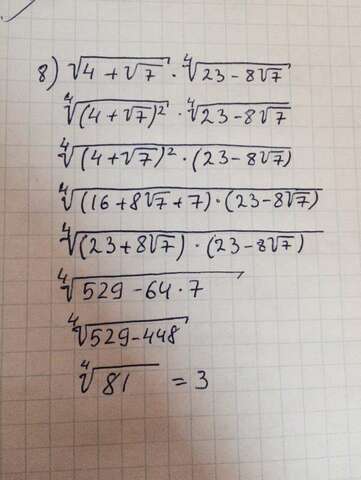 8) √(4 + √7) · ∜(23 - 8√7)
∜((4 + √7)²) · ∜(23 - 8√7)
∜((4 + √7)² · (23 - 8√7))
∜((16 + 8√7 + 7) · (23 - 8√7))
∜((23 + 8√7) · (23 - 8√7))
∜(529 - 64 · 7)
∜(529 - 448)
∜81 = 3